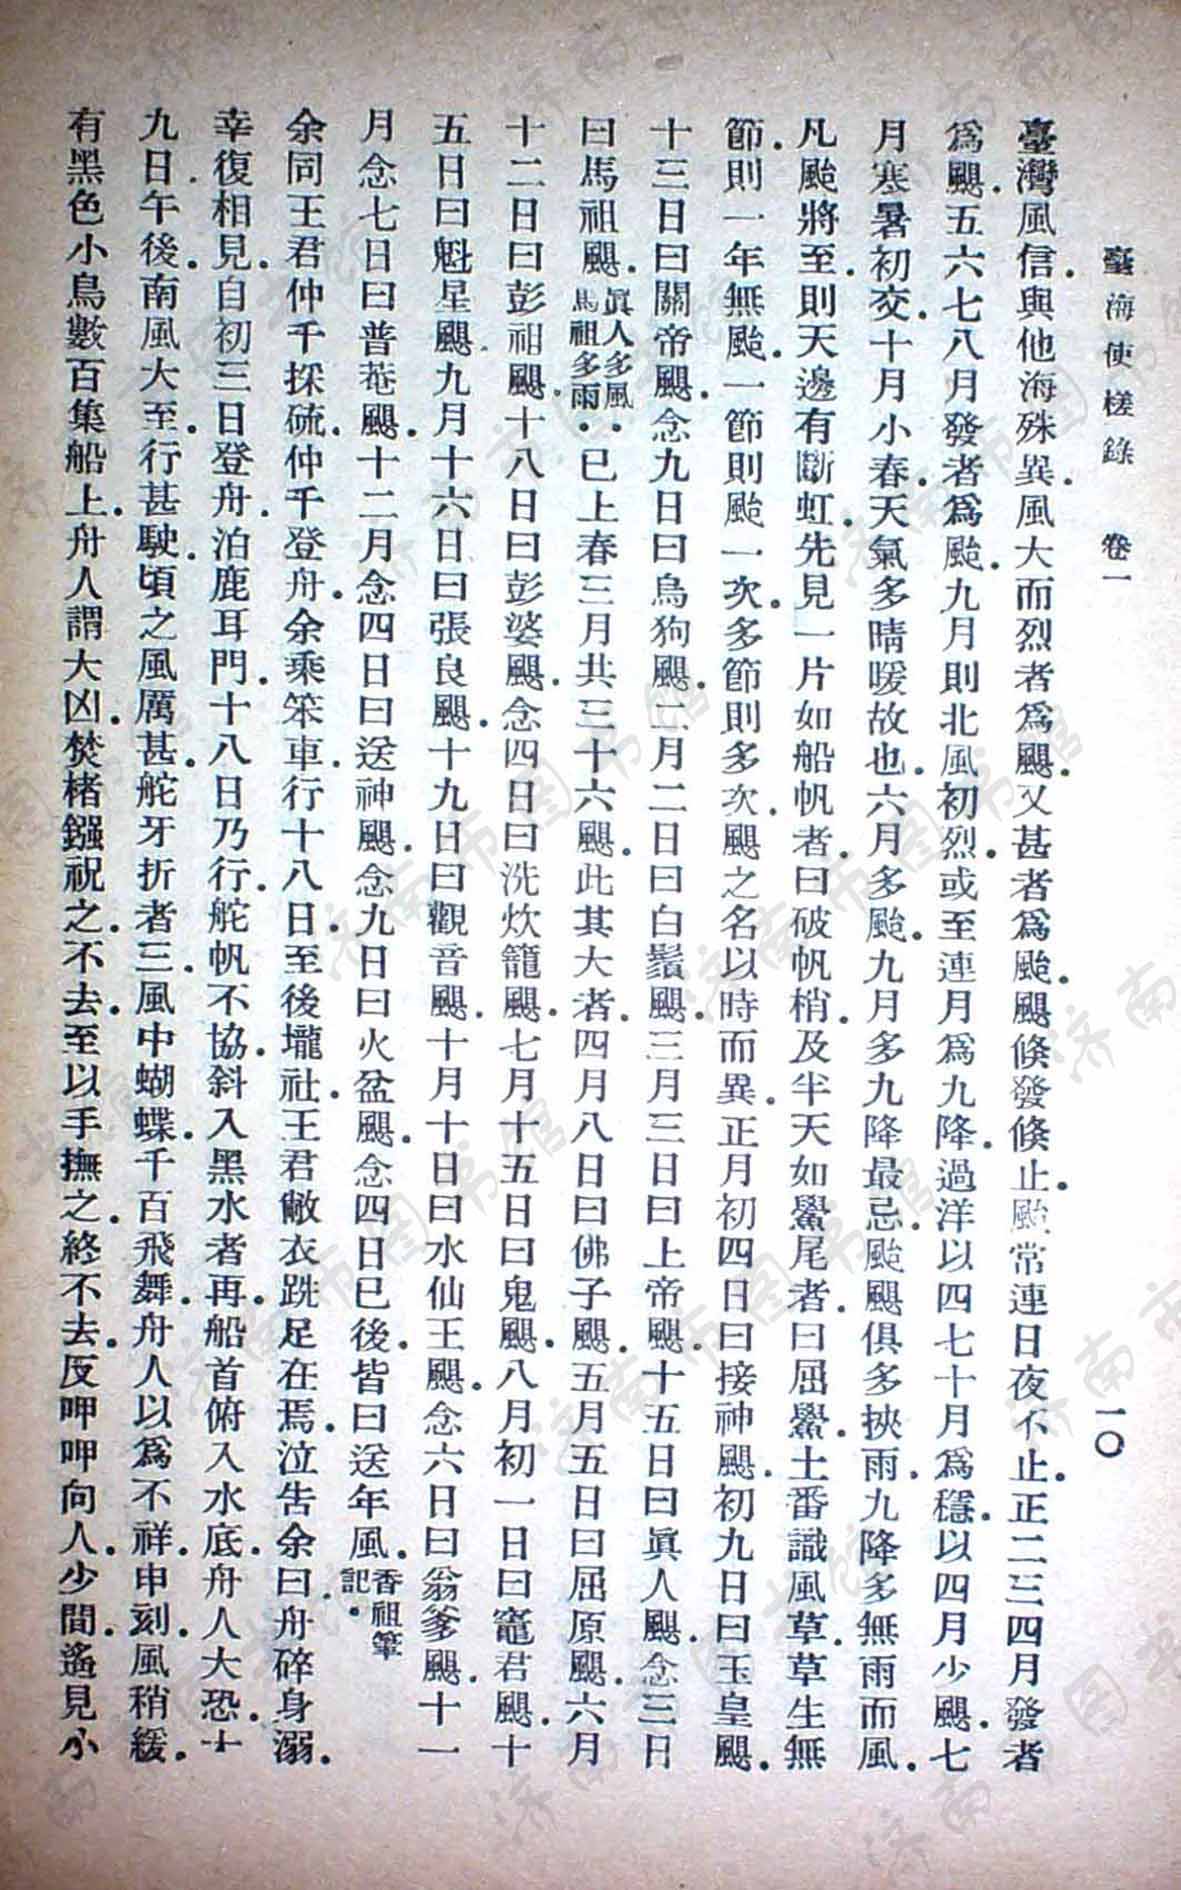 臺海使槎錄　卷一　一〇
臺灣風信．與他海殊異．風大而烈者爲颶．又甚者爲颱．颶倏發倏止．颱常連日夜不止．正二三四月發者
爲颶．五六七八月發者爲颱．九月則北風初烈．或至連月．爲九降．過洋以四七十月爲穩．以四月少颶．七
月寒暑初交．十月小春．天氣多晴暖故也．六月多颱．九月多九降．最忌．颱颶俱多挾雨．九降多無雨而風．
凡颱將至．則天邊有斷虹．先見一片如船帆者．曰破帆梢．及半天如鱟尾者．曰屈鱟．土番識風草．草生無
節．則一年無颱．一節則颱一次．多節則多次．颶之名以時而異．正月初四日曰接神颶．初九日曰玉皇颶．
十三日曰關帝颶．念九日曰烏狗颶．二月二日曰白鬚颶．三月三日曰上帝颶．十五日曰眞人颶．念三日
曰馬祖颶．眞人多風馬祖多雨．．已上春三月共三十六颶．此其大者．四月八日曰佛子颶．五月五日曰屈原颶．六月
十二日曰彭祖颶．十八日曰彭婆颶．念四日曰洗炊籠颶．七月十五日曰鬼颶．八月初一日曰竈君颶．十
五日曰魁星颶．九月十六日曰張良颶．十九日曰觀音颶．十月十日曰水仙王颶．念六日曰翁爹颶．十一
月念七日曰普菴颶．十二月念四日曰送神颶．念九日曰火盆颶．念四日已後．皆曰送年風．香祖筆記．
余同王君仲千採硫．仲千登舟．余乘笨車．行十八日．至後壠社．王君敝衣跣足在焉．泣告余曰．舟碎身溺．
幸復相見．自初三日登舟．泊鹿耳門．十八日乃行．舵帆不協．斜入黑水者再．船首俯入水底．舟人大恐．十
九日．午後．南風大至．行甚駛．頃之風厲甚．舵牙折者三．風中蝴蝶．千百飛舞．舟人以爲不祥．申刻．風稍緩．
有黑色小鳥數百集船上．舟人謂大凶．焚楮鏹祝之．不去．至以手撫之．終不去．反呷呷向人．少間．遙見小